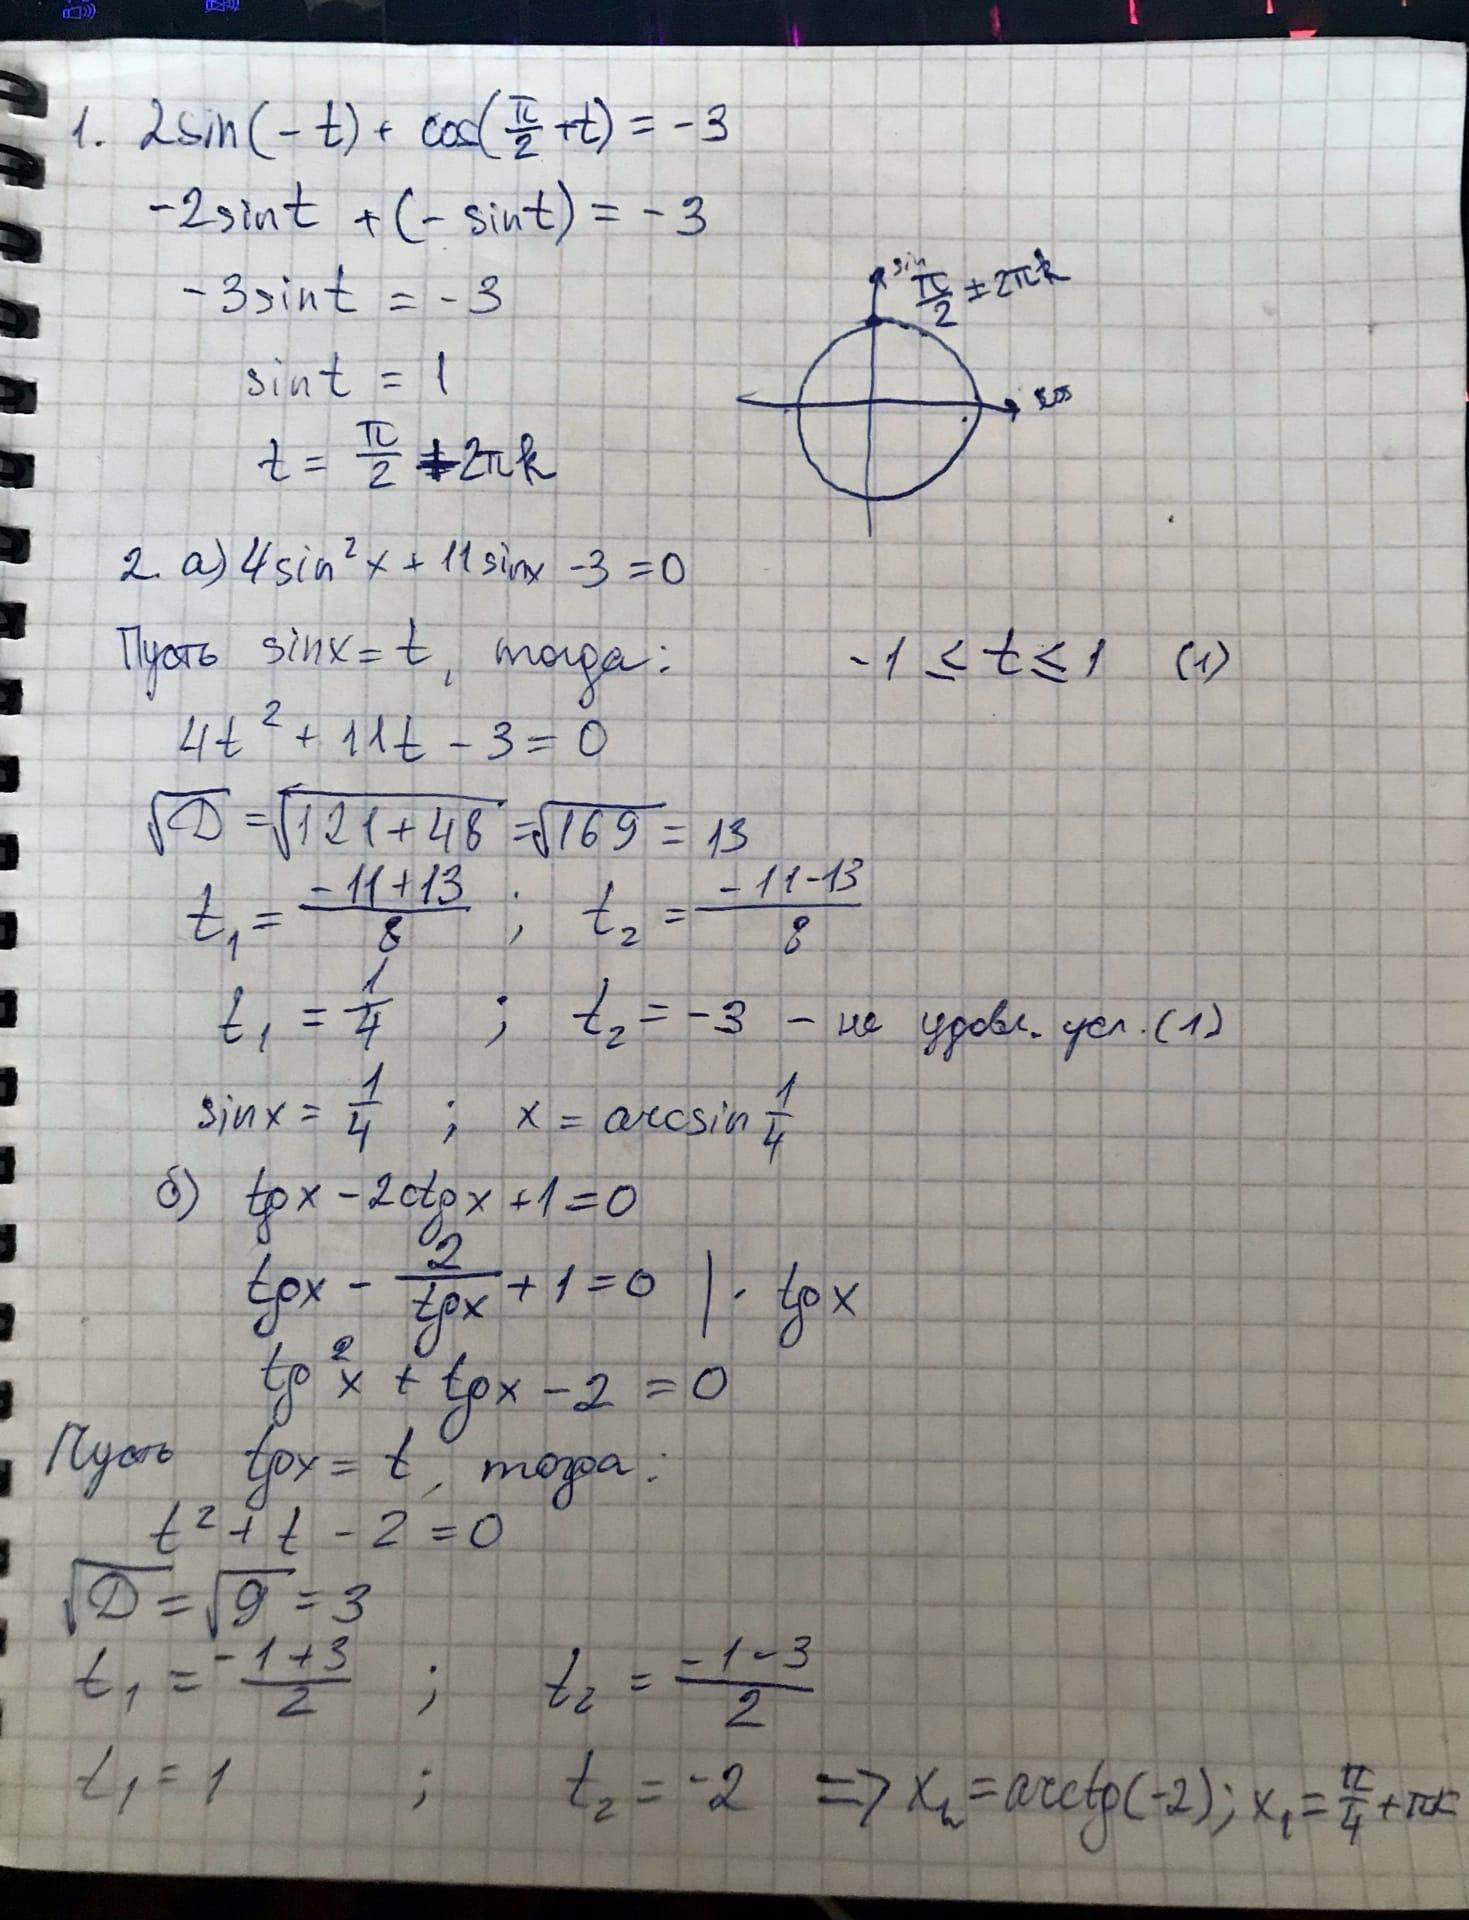 1. 2sin(-t) + cos(π/2 + t) = -3
-2sint + (- sint) = -3
-3sint = -3
sin
π/2 ± 2πk
sint = 1
cos
t = π/2 + 2πk
2. а) 4sin²x + 11sinx - 3 = 0
Пусть sinx = t, тогда: -1 ≤ t ≤ 1 (1)
4t² + 11t - 3 = 0
√D = √121+48 = √169 = 13
t₁ = (-11+13)/8 ; t₂ = (-11-13)/8
t₁ = 1/4 ; t₂ = -3 - не удовл. усл. (1)
sinx = 1/4 ; x = arcsin 1/4
б) tgx - 2ctgx + 1 = 0
tgx - 2/tgx + 1 = 0 | · tgx
tg²x + tgx - 2 = 0
Пусть tgx = t, тогда:
t² + t - 2 = 0
√D = √9 = 3
t₁ = (-1+3)/2 ; t₂ = (-1-3)/2
t₁ = 1 ; t₂ = -2 => x₂ = arctg(-2); x₁ = π/4 + πk